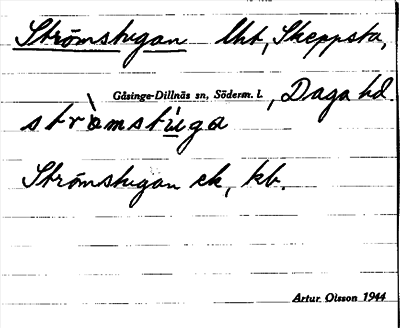 Strömstugan lht, Skeppsta,
Gåsinge-Dillnäs sn, Söderm. l., Daga hd.
strò̀mstùga
Strömstugan ek, kb.
Artur Olsson 1944